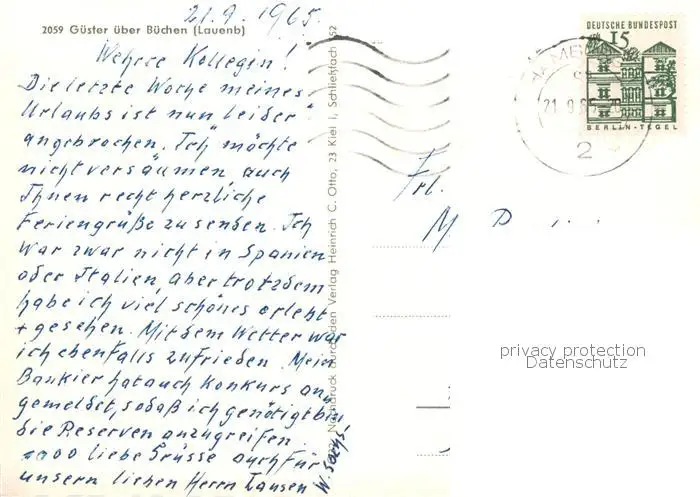 21.9.1965.
2059 Güster über Büchen (Lauenb)
Wehrte Kollegin!
Die letzte Woche meines
Urlaubs ist nun leider
angebrochen. Ich möchte
nicht versäumen, auch
Ihnen recht herzliche
Feriengrüße zu senden. Ich
war zwar nicht in Spanien
oder Italien, aber trotzdem
habe ich viel schönes erlebt
+ gesehen. Mit dem Wetter war
ich ebenfalls zufrieden. Mein
Bankier hat auch Konkurs an
gemeldet, sodaß ich genötigt bin
die Reserven anzugreifen.
1000 liebe Grüsse auch für
unsern lieben Herrn Jansen
Nachdruck durch den Verlag Heinrich C. Otto, 23 Kiel 1, Schließfach 52
DEUTSCHE BUNDESPOST
15
BERLIN-TEGEL
21.9.6
2
Frl.
M. D
privacy protection
Datenschutz